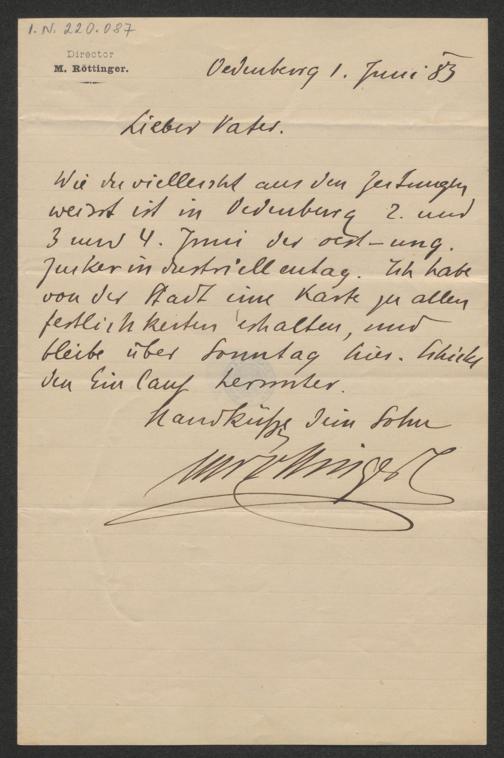 I.N. 220.087
Director
M. Röttinger.
Oedenburg 1. Juni 83
Lieber Vater.
Wie du vielleicht aus den Zeitungen
weisst ist in Oedenburg 2. und
3 und 4. Juni der oest-ung.
Zuckerindustriellentag. Ich habe
von der Stadt eine Karte zu allen
festlichkeiten erhalten, und
bleibe über Sonntag hier. Schicke
den Einlauf herunter.
Handküße Dein Sohn
MRöttinger